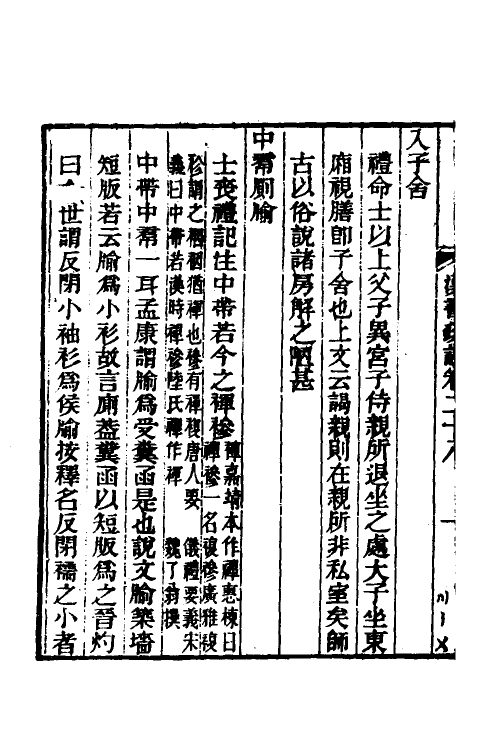 入子舍
禮命士以上父子異宮子侍親所退坐之處大子坐東
廂視膳卽子舍也上文云謁親則在親所非私室矣師
古以俗說諸房解之陋甚
中帬厠牏
士喪禮記注中帶若今之褌襂褌嘉靖本作襌惠棟曰褌襂一名複襂廣雅複
襂謂之裀裀猶褌也襂有褌複唐人要義曰中帶若漢時褌襂陸氏褌作襌 儀禮要義宋魏了翁撰
中帶中帬一耳孟康謂牏爲受糞函是也說文牏築墻
短版若云牏爲小衫故言廁葢糞函以短版爲之晉灼
曰 世謂反閉小袖衫爲侯牏按釋名反閉襦之小者